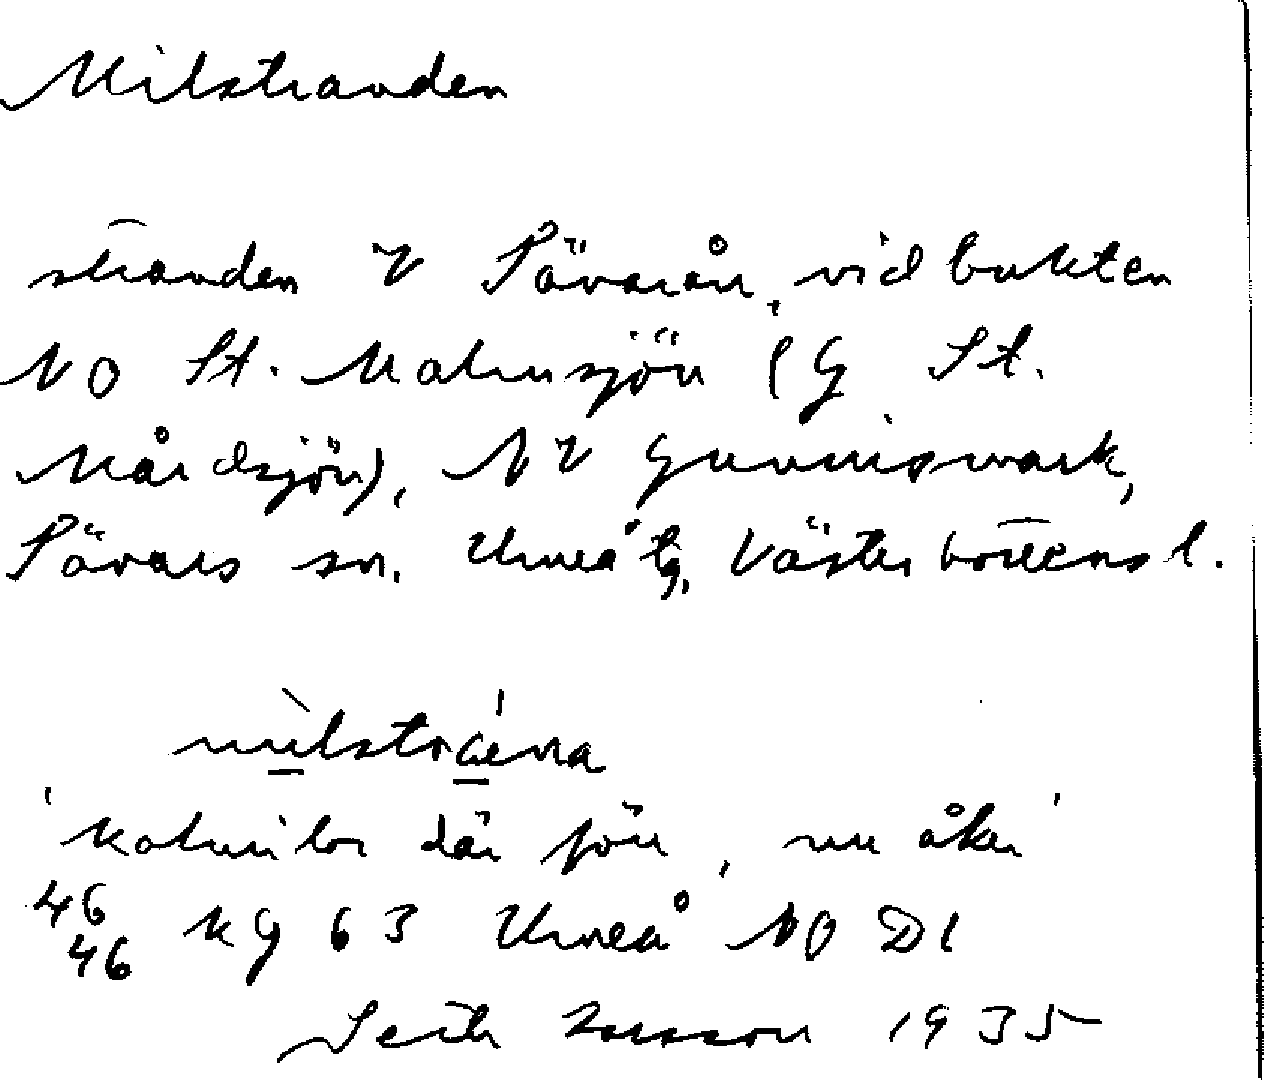 Milstranden
stranden V Sävarån, vid bukten
NO St. Malmsjön (G St.
Mårdsjön), NV Gunnismark,
Sävars sn. Umeå tg, Västerbottens l.
milstrána
'kolmilor där förr, nu åker'
46 kg 63 Umeå NO D1
46
1935